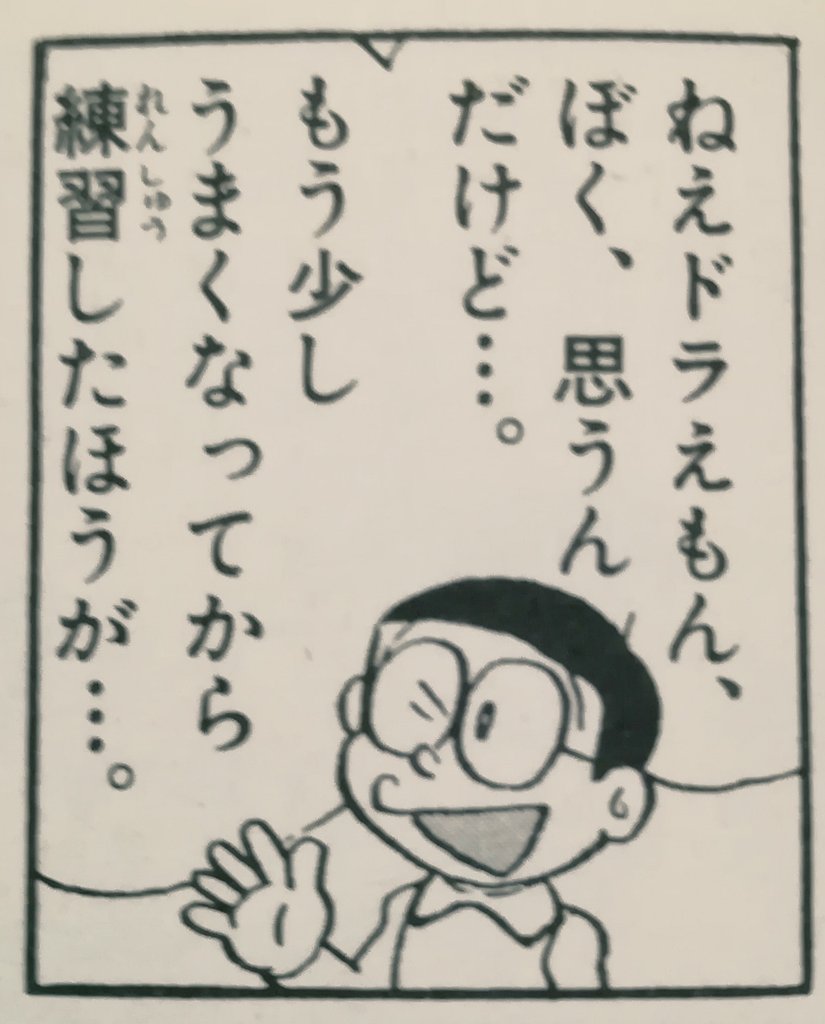 ねえドラえもん、
ぼく、思うん
だけど…。
もう少し
うまくなってから
練習したほうが…。
れんしゅう